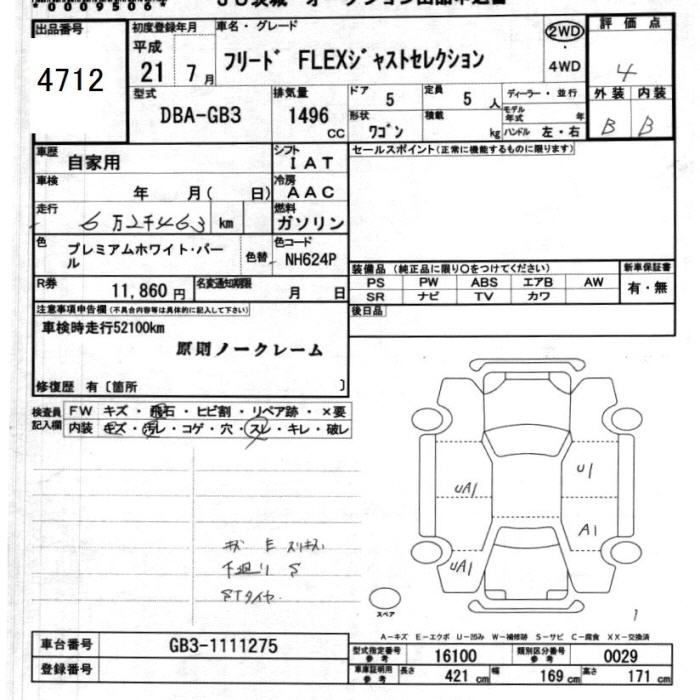 出品番号
4712
初度登録年月
平成
21 7月
車名・グレード
フリード FLEXジャストセレクション
2WD
・
4WD
評価点
4
外装 内装
B B
型式
DBA-GB3
排気量
1496
CC
ドア
5
定員
5 人
形状
ワゴン
積載
kg
ディーラー・並行
モデル
年式 年
ハンドル 左・右
車歴
自家用
シフト
IAT
車検
年 月( 日)
冷房
AAC
走行
6万2千463 km
燃料
ガソリン
色
プレミアムホワイト・パー
ル
色替
色コード
NH624P
R券
11,860 円
名変通知期限
月 日
セールスポイント(正常に機能するものに限ります)
装備品 (純正品に限り○をつけてください)
PS PW ABS エアB AW
SR ナビ TV カワ
新車保証書
有・無
後日品
注意事項申告欄(不具合内容等は具体的に記入して下さい)
車検時走行52100km
原則ノークレーム
修復歴 有〔箇所 〕
検査員
記入欄
FW キズ・飛石・ヒビ割・リペア跡・×要
内装 キズ・汚レ・コゲ・穴・スレ・キレ・破レ
UA1
U1
A1
UA1
キズ E スリキズ
下廻り S
STタイヤ
スペア
1
A-キズ E-エクボ U-凹み W-補修跡 S-サビ C-腐食 XX-交換済
車台番号
GB3-1111275
登録番号
型式指定番号
参考
16100
類別区分番号
参考
0029
車庫証明用
参考
長さ 421 cm 幅 169 cm 高さ 171 cm